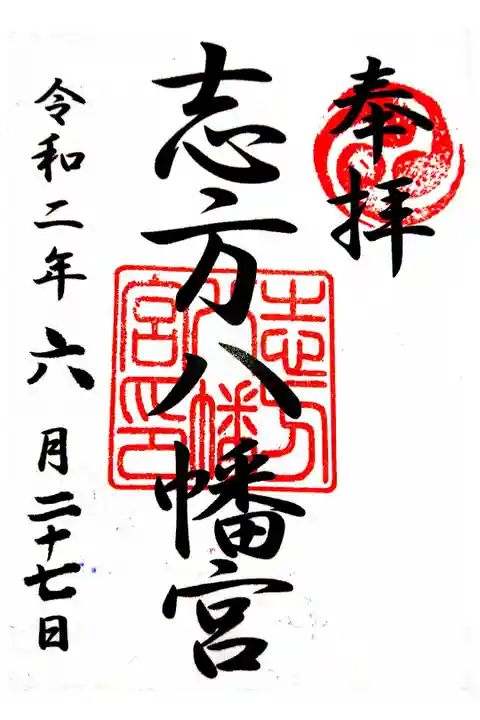 奉拝
志方八幡宮
志方八幡宮印
令和二年六月二十七日